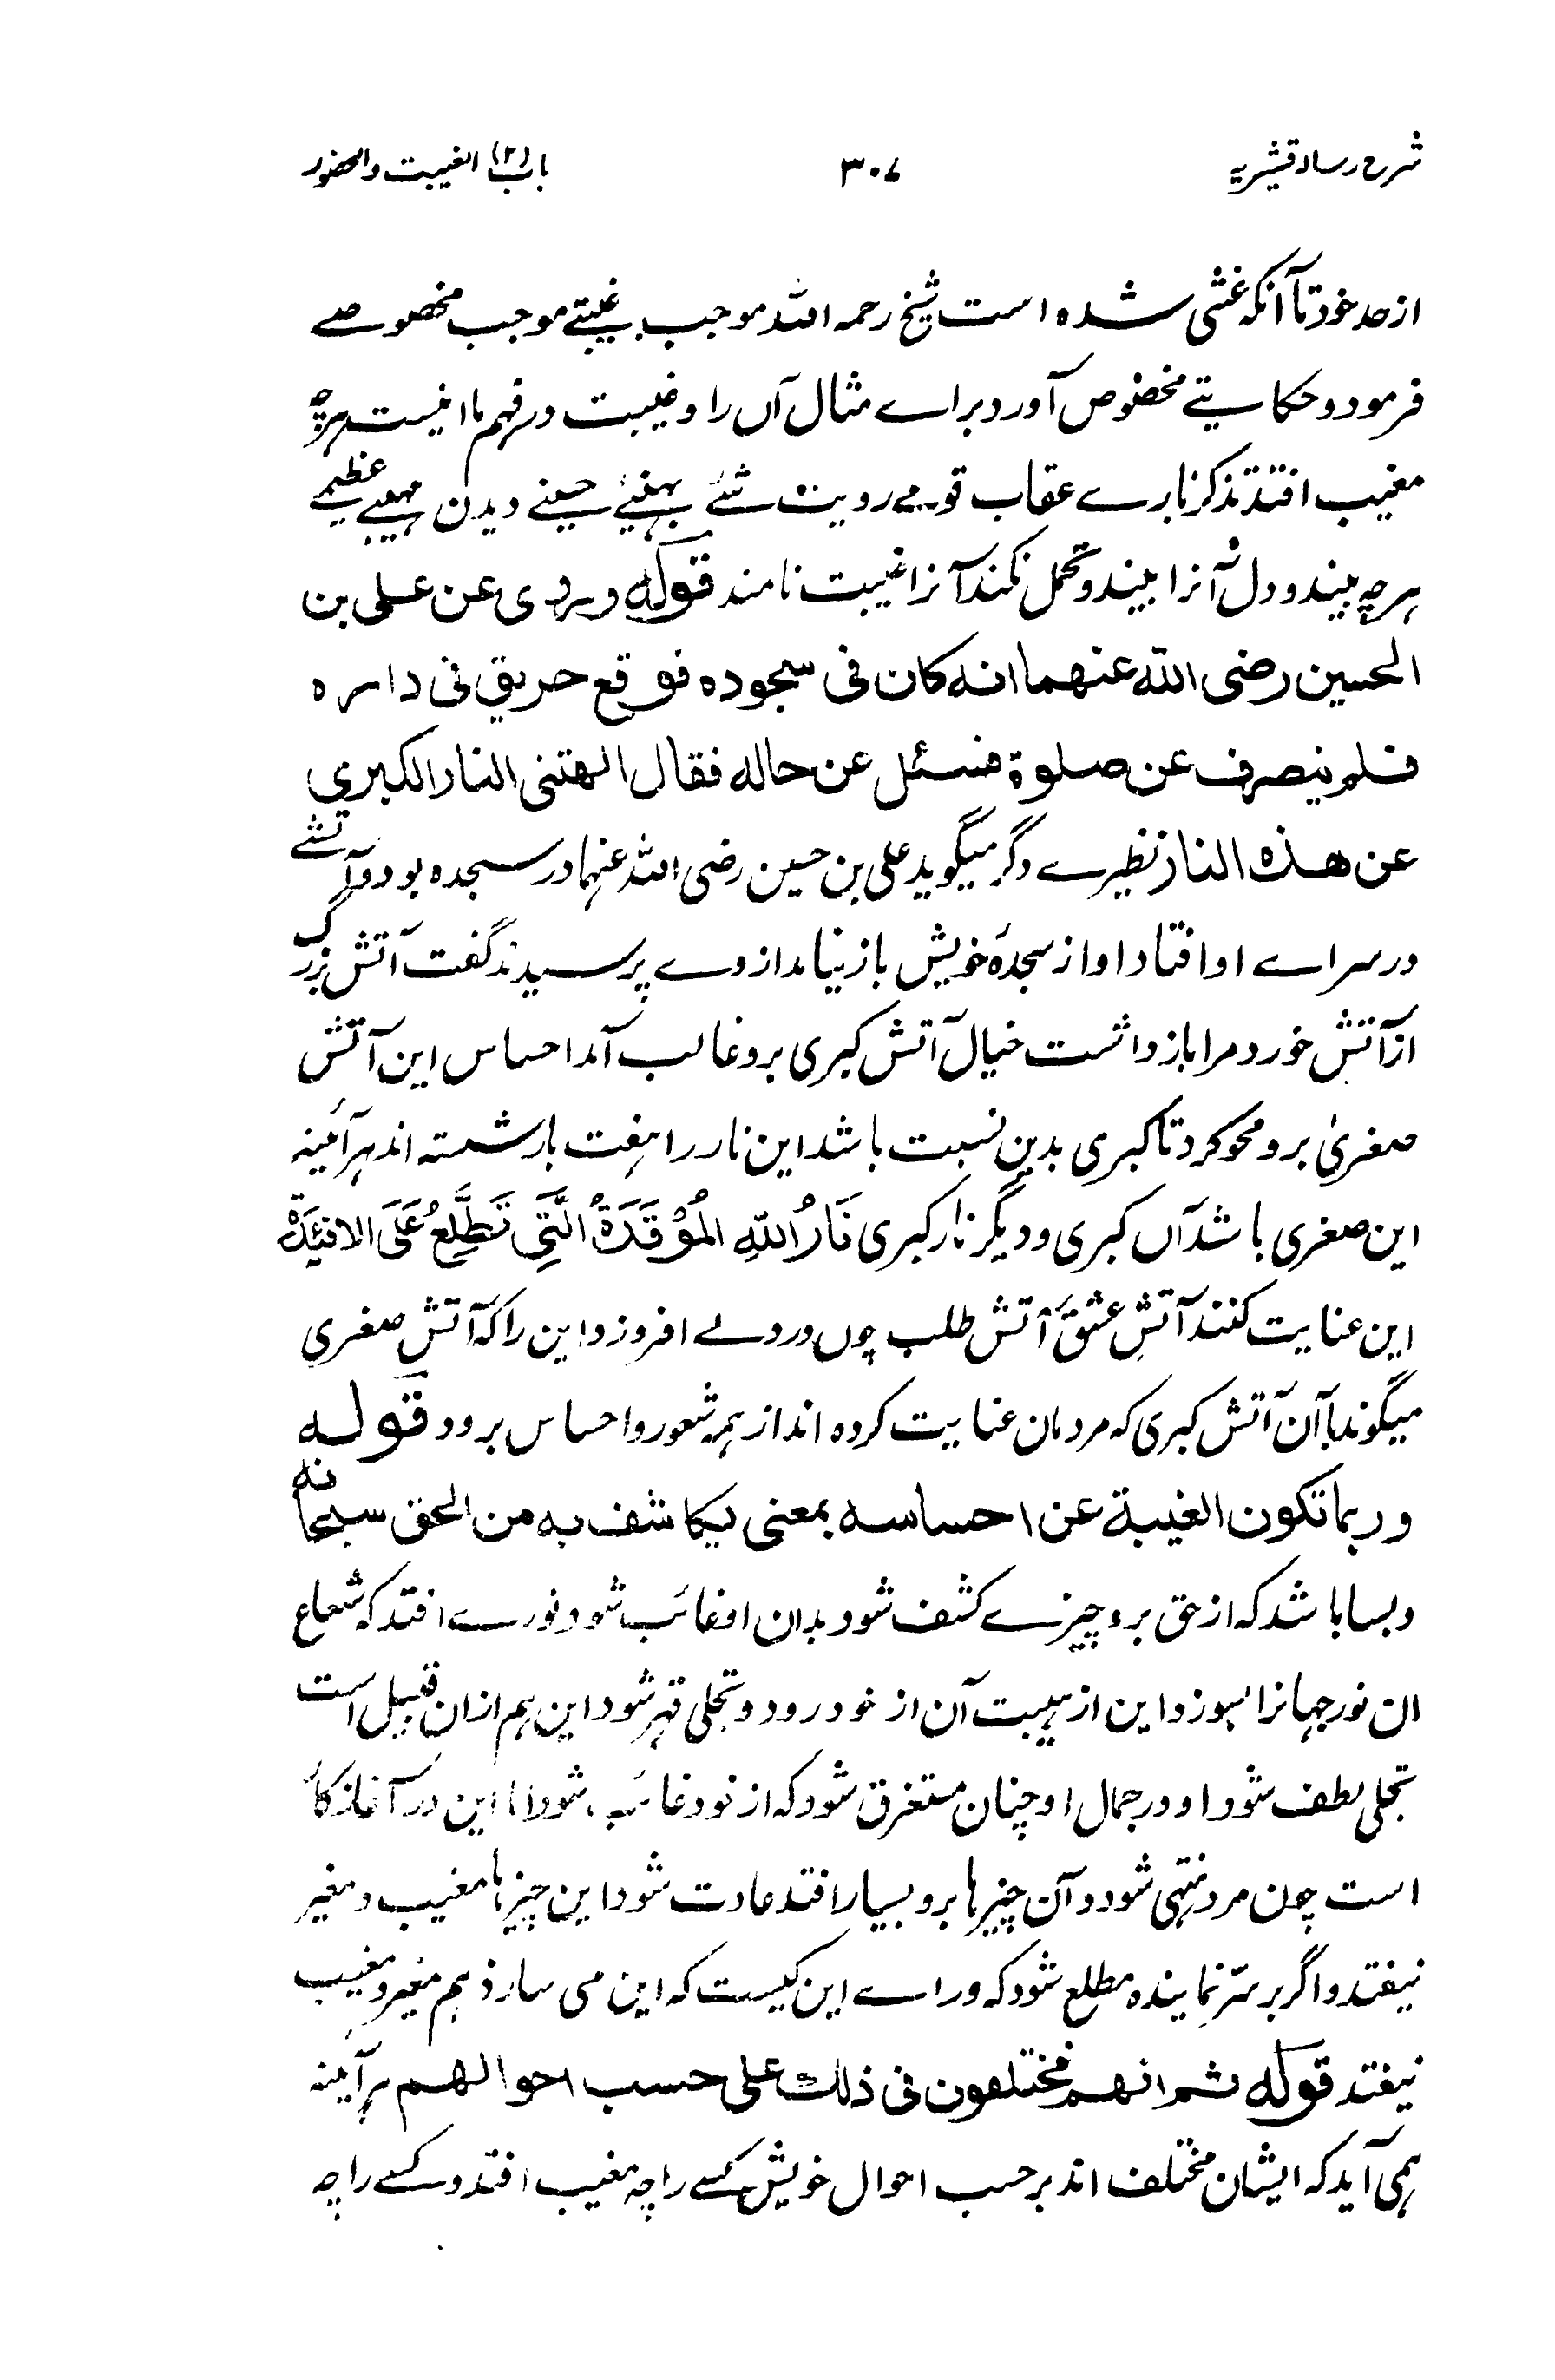 شرح رساله قشیریه ۳۰۷ باب (۲) الغیبت والحضور
از حد خود تا آنکه غشی شده است شیخ رحمه الله موجب غیبتے موجب مخصوصے
فرمود و حکایتے مخصوص آورد براے مثال آں را و غیبت در فهم ما اینست هرچه
مغیب افتد تذکر نارے عقاب قومے رویت شئے بهئیے حسینے دیدن مهیبے عظیمے
هرچه بیند و دل آنرا بیند و تحمل نکند آنرا غیبت نامند قوله وروی عن علی بن
الحسین رضی الله عنهما انه کان فی سجوده فوقع حریق فی داره
فلم ینصرف عن صلوة فسئل عن حاله فقال الهتنی النار الکبری
عن هذه النار نظیرے دگر میگوید علی بن حسین رضی الله عنهما در سجده بود و آتشے
در سراے او افتاد او از سجدهٔ خویش باز نیامد از وے پرسیدند گفت آتش بزرگ
از آتش خورد مرا باز داشت خیال آتش کبری برو غالب آمد احساس این آتش
صغریٰ برو محو کرد تا کبری بدین نسبت باشد این نار را هفت بار شسته اند هر آئینه
این صغری باشد آں کبری و دیگر نار کبری نَارُ اللهِ المُوْقَدَةُ الَّتِی تَطَّلِعُ عَلَی الافئِدَةْ
این عنایت کنند آتش عشق آتش طلب چوں در دلے افروزد این را که آتش صغری
میگوند با آن آتش کبری که مردمان عنایت کرده اند از همه شعور و احساس برود قوله
وربما تکون الغیبة عن احساسه بمعنی یکاشف به من الحق سبحانه
و بسا باشد که از حق برو چیزے کشف شود بدان او غائب شود نورے افتد که شعاع
ان نور جهانرا بسوزد این از هیبت آن از خود رود و تجلی قهر شود این هم ازان قبیل است
تجلی لطف شود او در جمال او چنان مستغرق شود که از خود غائب شود اما این در آغاز کار
است چون مرد منتهی شود و آن چیزها برو بسیار افتد عادت شود این چیزها مغیب و مغیر
نیفتد و اگر بر سرّ نماینده مطلع شود که وراے این کیست که این می سازد هم مغیر و مغیب
نیفتد قوله ثم انهم مختلفون فی ذلک علی حسب احوالهم هر آینه
همی آید که ایشان مختلف اند بر حسب احوال خویش کسے را چه مغیب افتد و کسے را چه